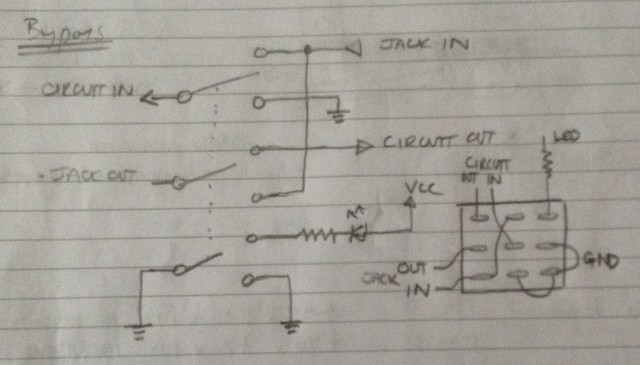 Bypass
JACK IN
CIRCUIT IN
CIRCUIT OUT
JACK OUT
VCC
LED
CIRCUIT
OUT IN
JACK OUT
IN
GND